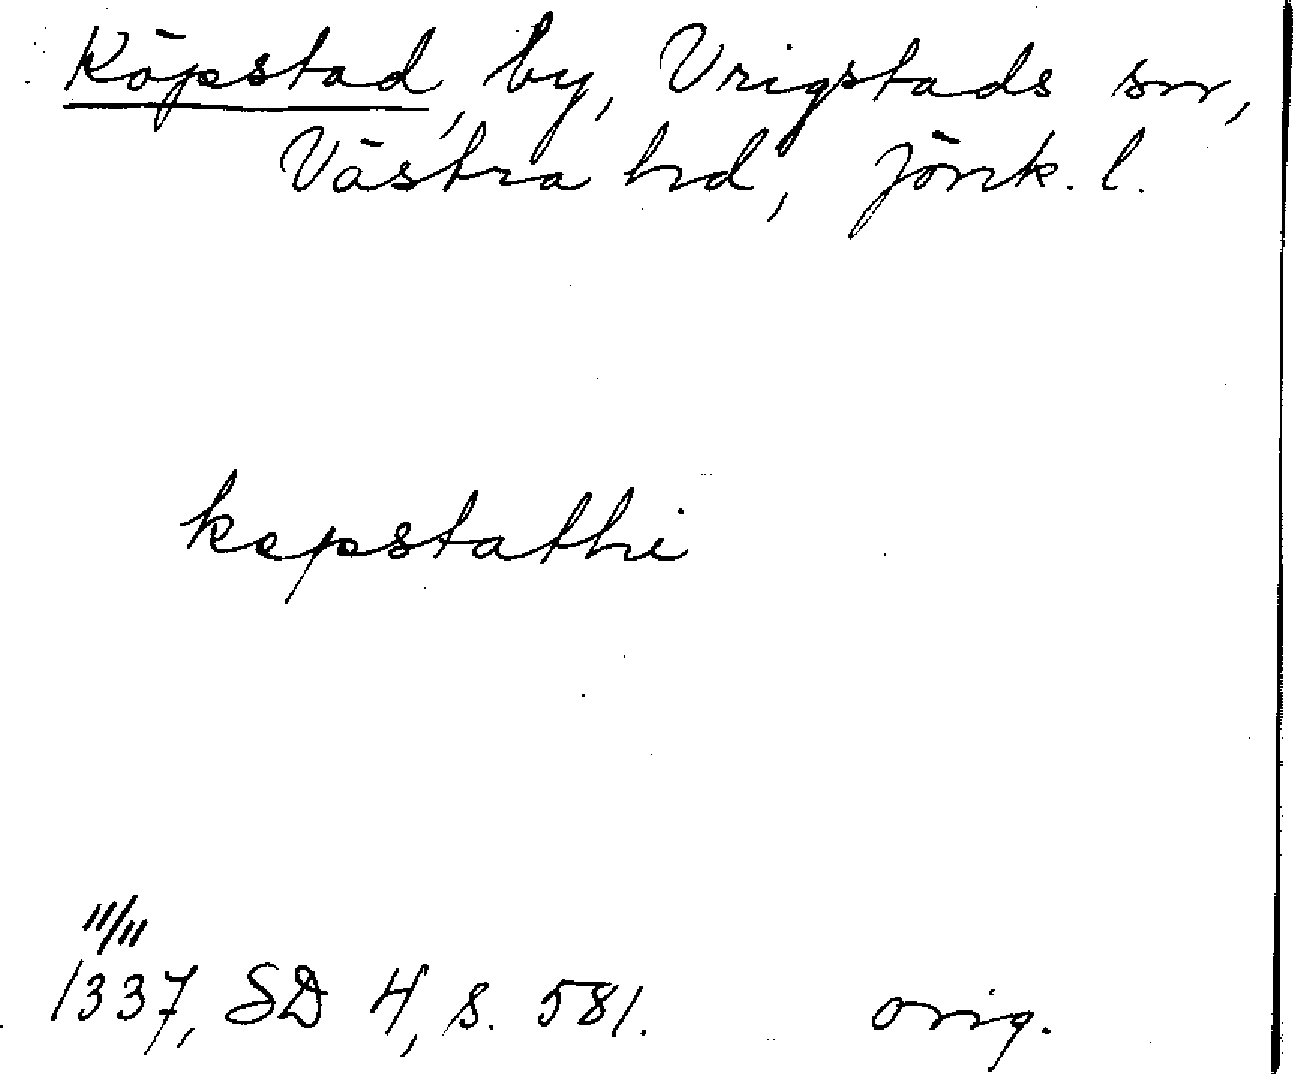 Köpstad, by, Vrigstads sn,
Västra hd, Jönk. l.
kepstathi
11/11
1337, SD 4, s. 581. orig.